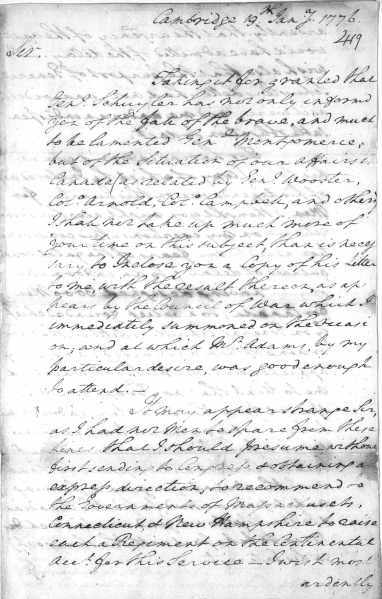 Cambridge 19th Jany. 1776.
419
Sir,
Taking it for granted that
Genl. Schuyler has not only inform'd
you of the fall of the brave, and much
to be lamented Genl. Montgomerie,
but of the Situation of our Affairs in
Canada (as related by Genl. Wooster,
Colo. Arnold, Colo. Campbell, and others
I shall not take up much more of
your time on this subject, than is neces
sary to Inclose you a Copy of his Letter
to me with the result thereon, as ap
pears by the Council of War which I
immediately summoned on the occasi
on, and at which Mr. Adams, by my
particular desire, was good enough
to attend.—
It may appear strange Sir,
as I had not Men to spare from these
Lines that I should presume without
first sending to Congress & obtaining an
express direction, to recommend to
the Governments of Massachusets,
Connecticut & New Hampshire to raise
each a Regiment on the Continental
Acct. for this Service— I wish most
ardently